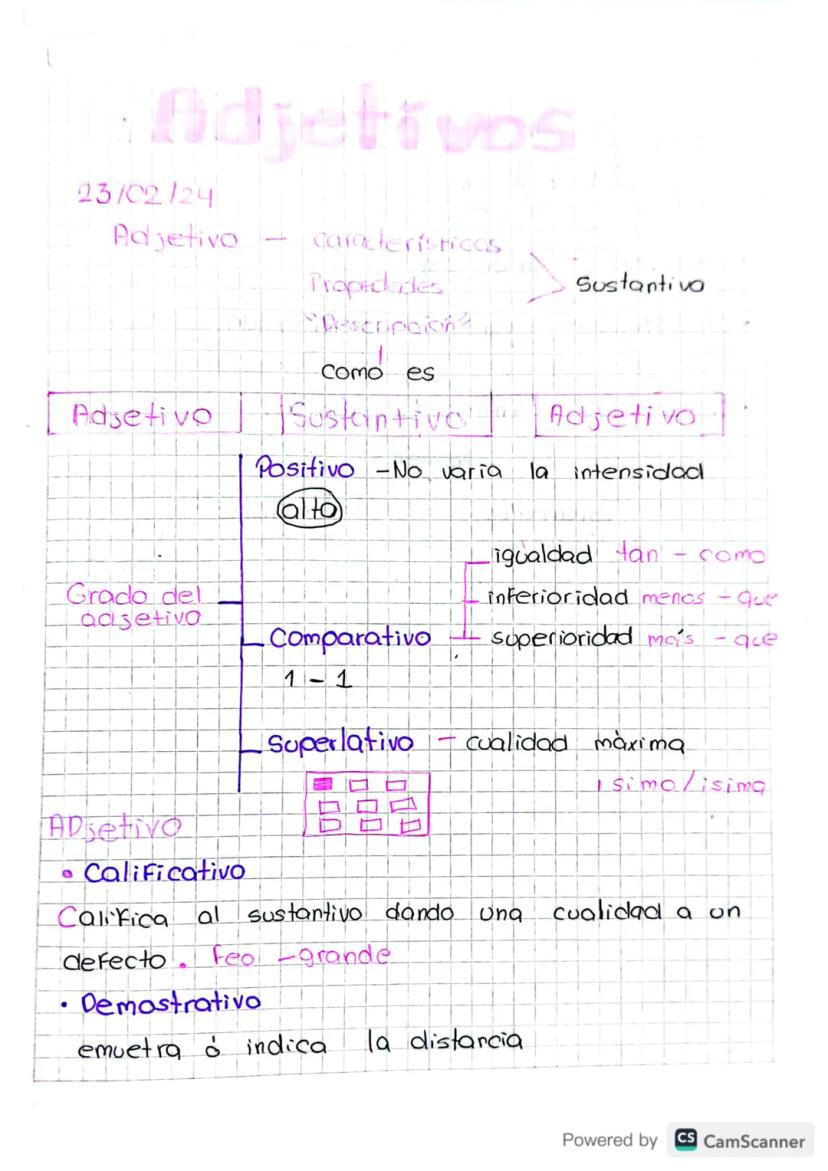 Adjetivos
23/02/24
Adjetivo - características
Propiedades
Sustantivo
"Descripción"
como es
Adjetivo Sustantivo Adjetivo
Positivo - No varia la intensidad
alto
igualdad tan - como
Grado del
adjetivo
inferioridad menos - que
Comparativo
superioridad más - que
1 - 1
Superlativo - cualidad màxima
isimo/isima
ADjetivo
• Calificativo
Califica al sustantivo dando una cualidad a un
defecto. feo - grande
• Demostrativo
emuetra ó indica la distancia
Powered by CS CamScanner